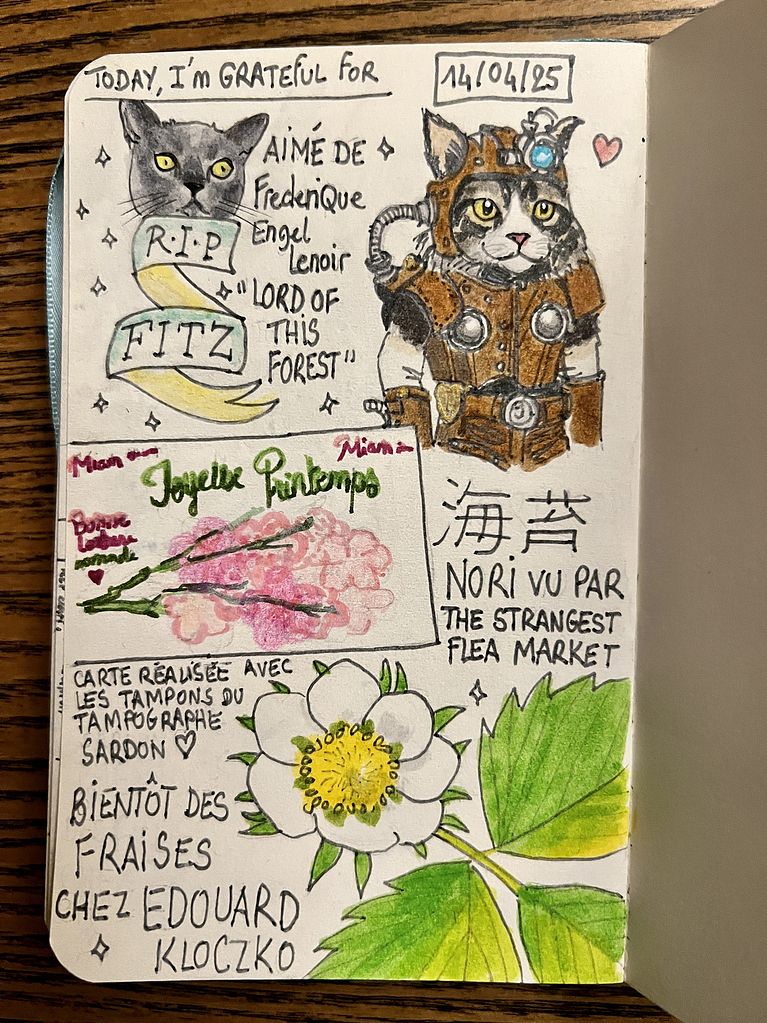 TODAY, I'm GRATEFUL FOR
14/04/25
AIMÉ DE
FredeRiQue
Engel
Lenoir
"LORD OF
THIS
FOREST"
R.I.P
FITZ
Miam
Miam
Joyeux Printemps
Bonne
nomade
海苔
NORI VU PAR
THE STRANGEST
FLEA MARKET
CARTE RÉALISÉE AVEC
LES TAMPONS DU
TAMPOGRAPHE
SARDON ♡
BIENTÔT DES
FRAISES
CHEZ EDOUARD
KLOCZKO